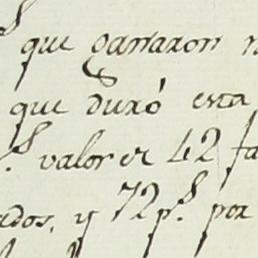 que ganaron
que duró esta
valor er 42 fa
ados, y 72 p.s por